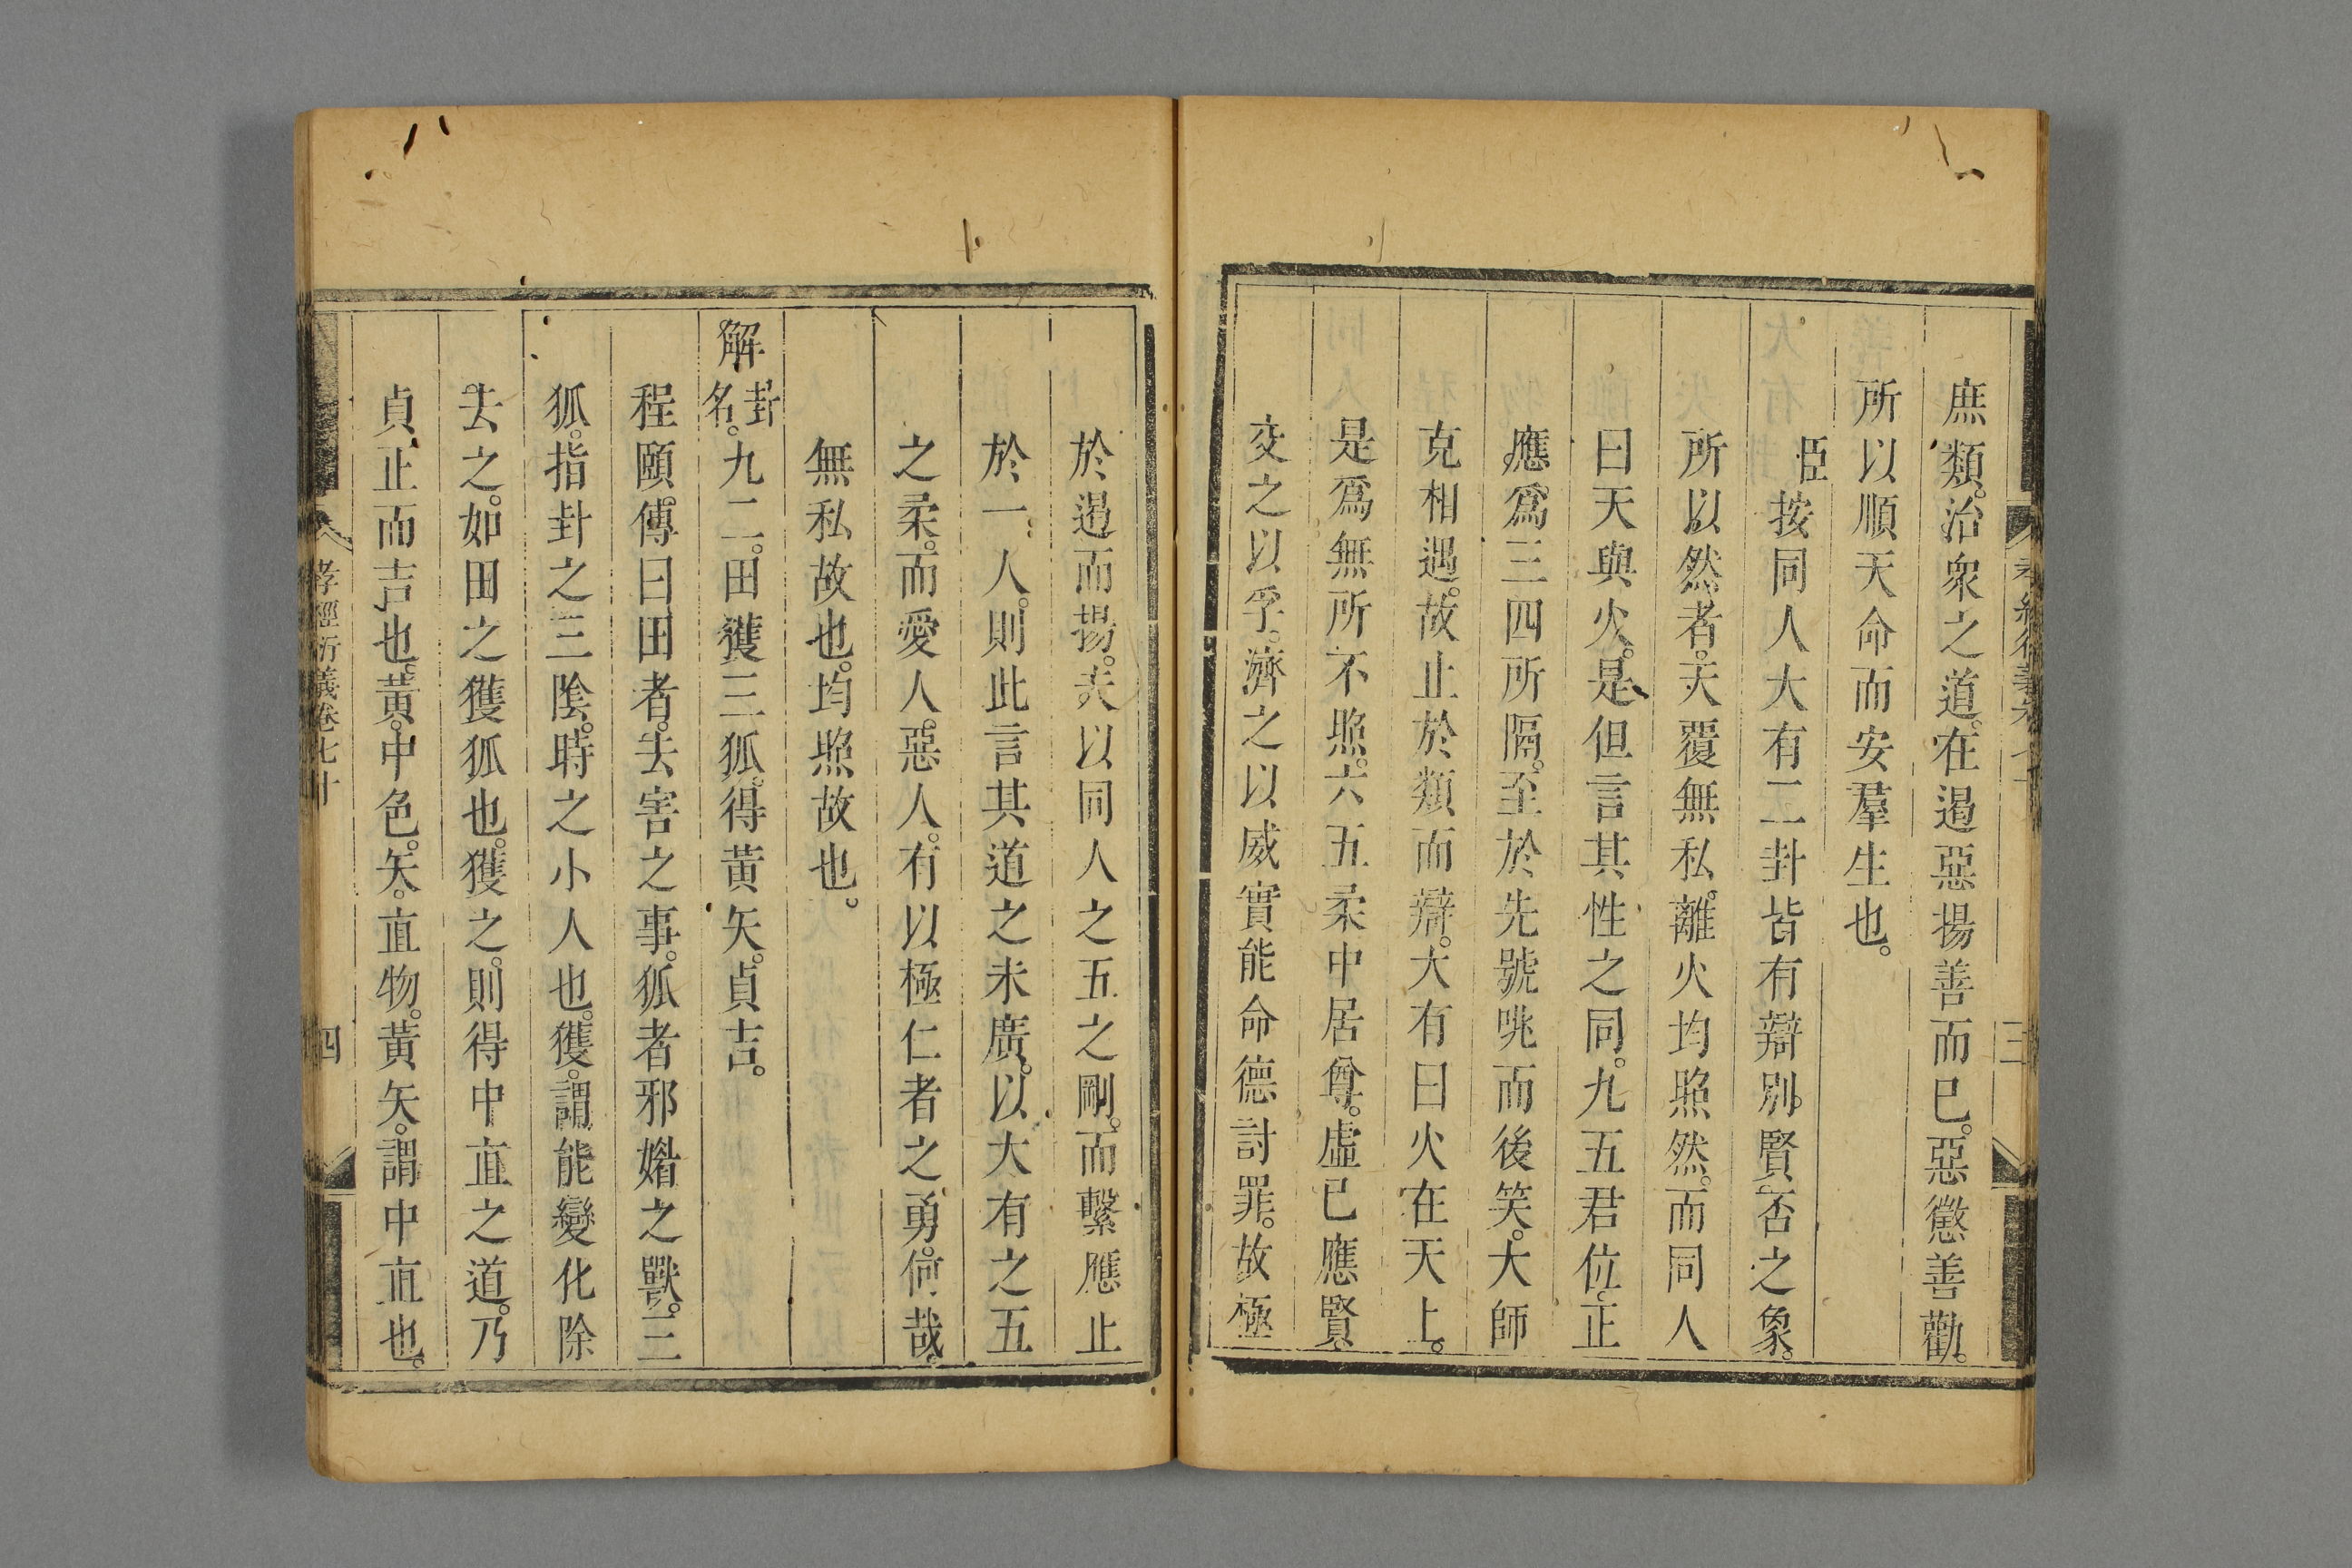 庶類。治衆之道。在遏惡揚善而已。惡懲善勸。
所以順天命而安羣生也。
臣按同人大有二卦皆有辯別。賢否之象。
所以然者。天覆無私。離火均照然。而同人
曰天與火。是但言其性之同。九五君位。正
應。爲三四所隔。至於先號咷而後笑。大師
克相遇。故止於類而辯。大有曰火在天上。
是爲無所不照。六五柔中居尊。虛已應賢。
交之以孚。濟之以威實能命德討罪。故極
孝經衍義卷七十
三
於遏而揚。夫以同人之五之剛。而繫應止
於一人。則此言其道之未廣。以大有之五
之柔。而愛人。惡人。有以極仁者之勇。何哉。
無私故也。均照故也。
解卦名。九二。田獲三狐。得黃矢。貞吉。
程頤傳曰田者。去害之事。狐者邪媚之獸。三
狐。指卦之三陰。時之小人也。獲。謂能變化除
去之。如田之獲狐也。獲之。則得中直之道。乃
貞正而吉也。黃。中色。矢。直物。黃矢。謂中直也。
孝經衍義卷七十
四